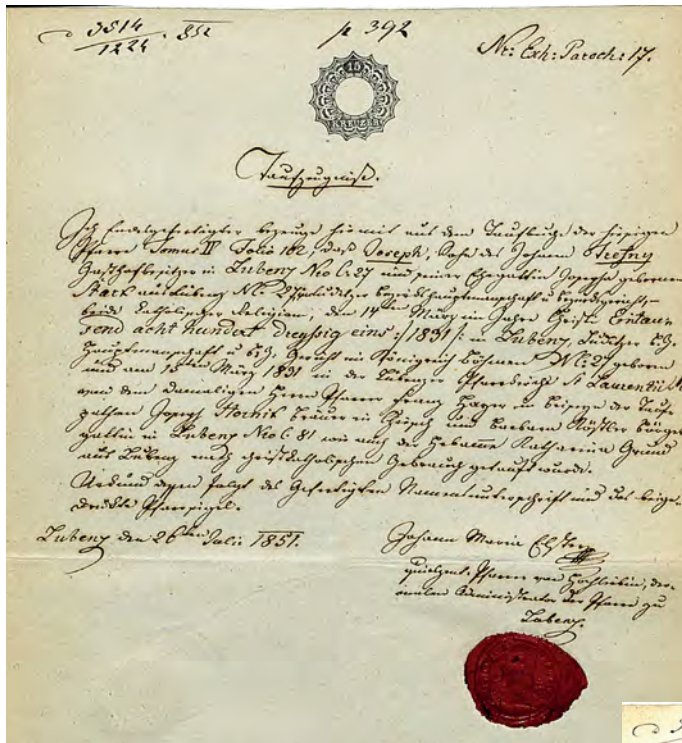 3814
1224 . 852
p 392
Nr: Exh: Paroch: 17.
15
KREUZER
Taufzeugniß.
Ich Endesgefertigter bezeuge hiermit aus dem Taufbuche der hiesigen
Pfarre Tomus IV Folio 102, daß Joseph, Sohn des Johann
Gasthofbesitzer in Lubenz Nro C. 27 und seiner Ehegattin Josepha geborenen
Stark aus Lubenz No: 27, Bezirkshauptmannschaft u Bezirksgericht,
beide katholischer Religion, den 14ten März im Jahre Christi Eintau-
send acht hundert dreyssig eins :/1831/: in Lubenz,
Hauptmannschaft u Bez. Gericht im Königreich Böhmen No: 27 geboren
und am 15ten März 1831 in der Lubenzer Pfarrkirche St Laurentii
von dem damaligen Herrn Pfarrer Franz Hager im Beisein der Tauf-
pathen Joseph Brauer in und Barbara
gattin in Lubenz Nro C 81 wie auch der Hebamme Katharina Grund
aus Lubenz nach christkatholischen Gebrauch getauft wurde.
Urkund dessen folgt des Gefertigten Namensunterschrift und das beige-
druckte Pfarrsiegel.
Lubenz den 26ten Julii 1851.
Johann Maria
Pfarrer von der-
malen Administrator der Pfarre zu
Lubenz.